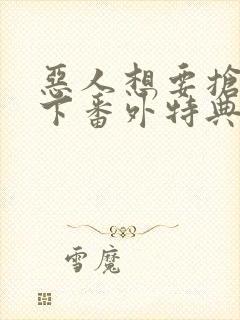 惡人想要搶救一
下番外特典
雪魔